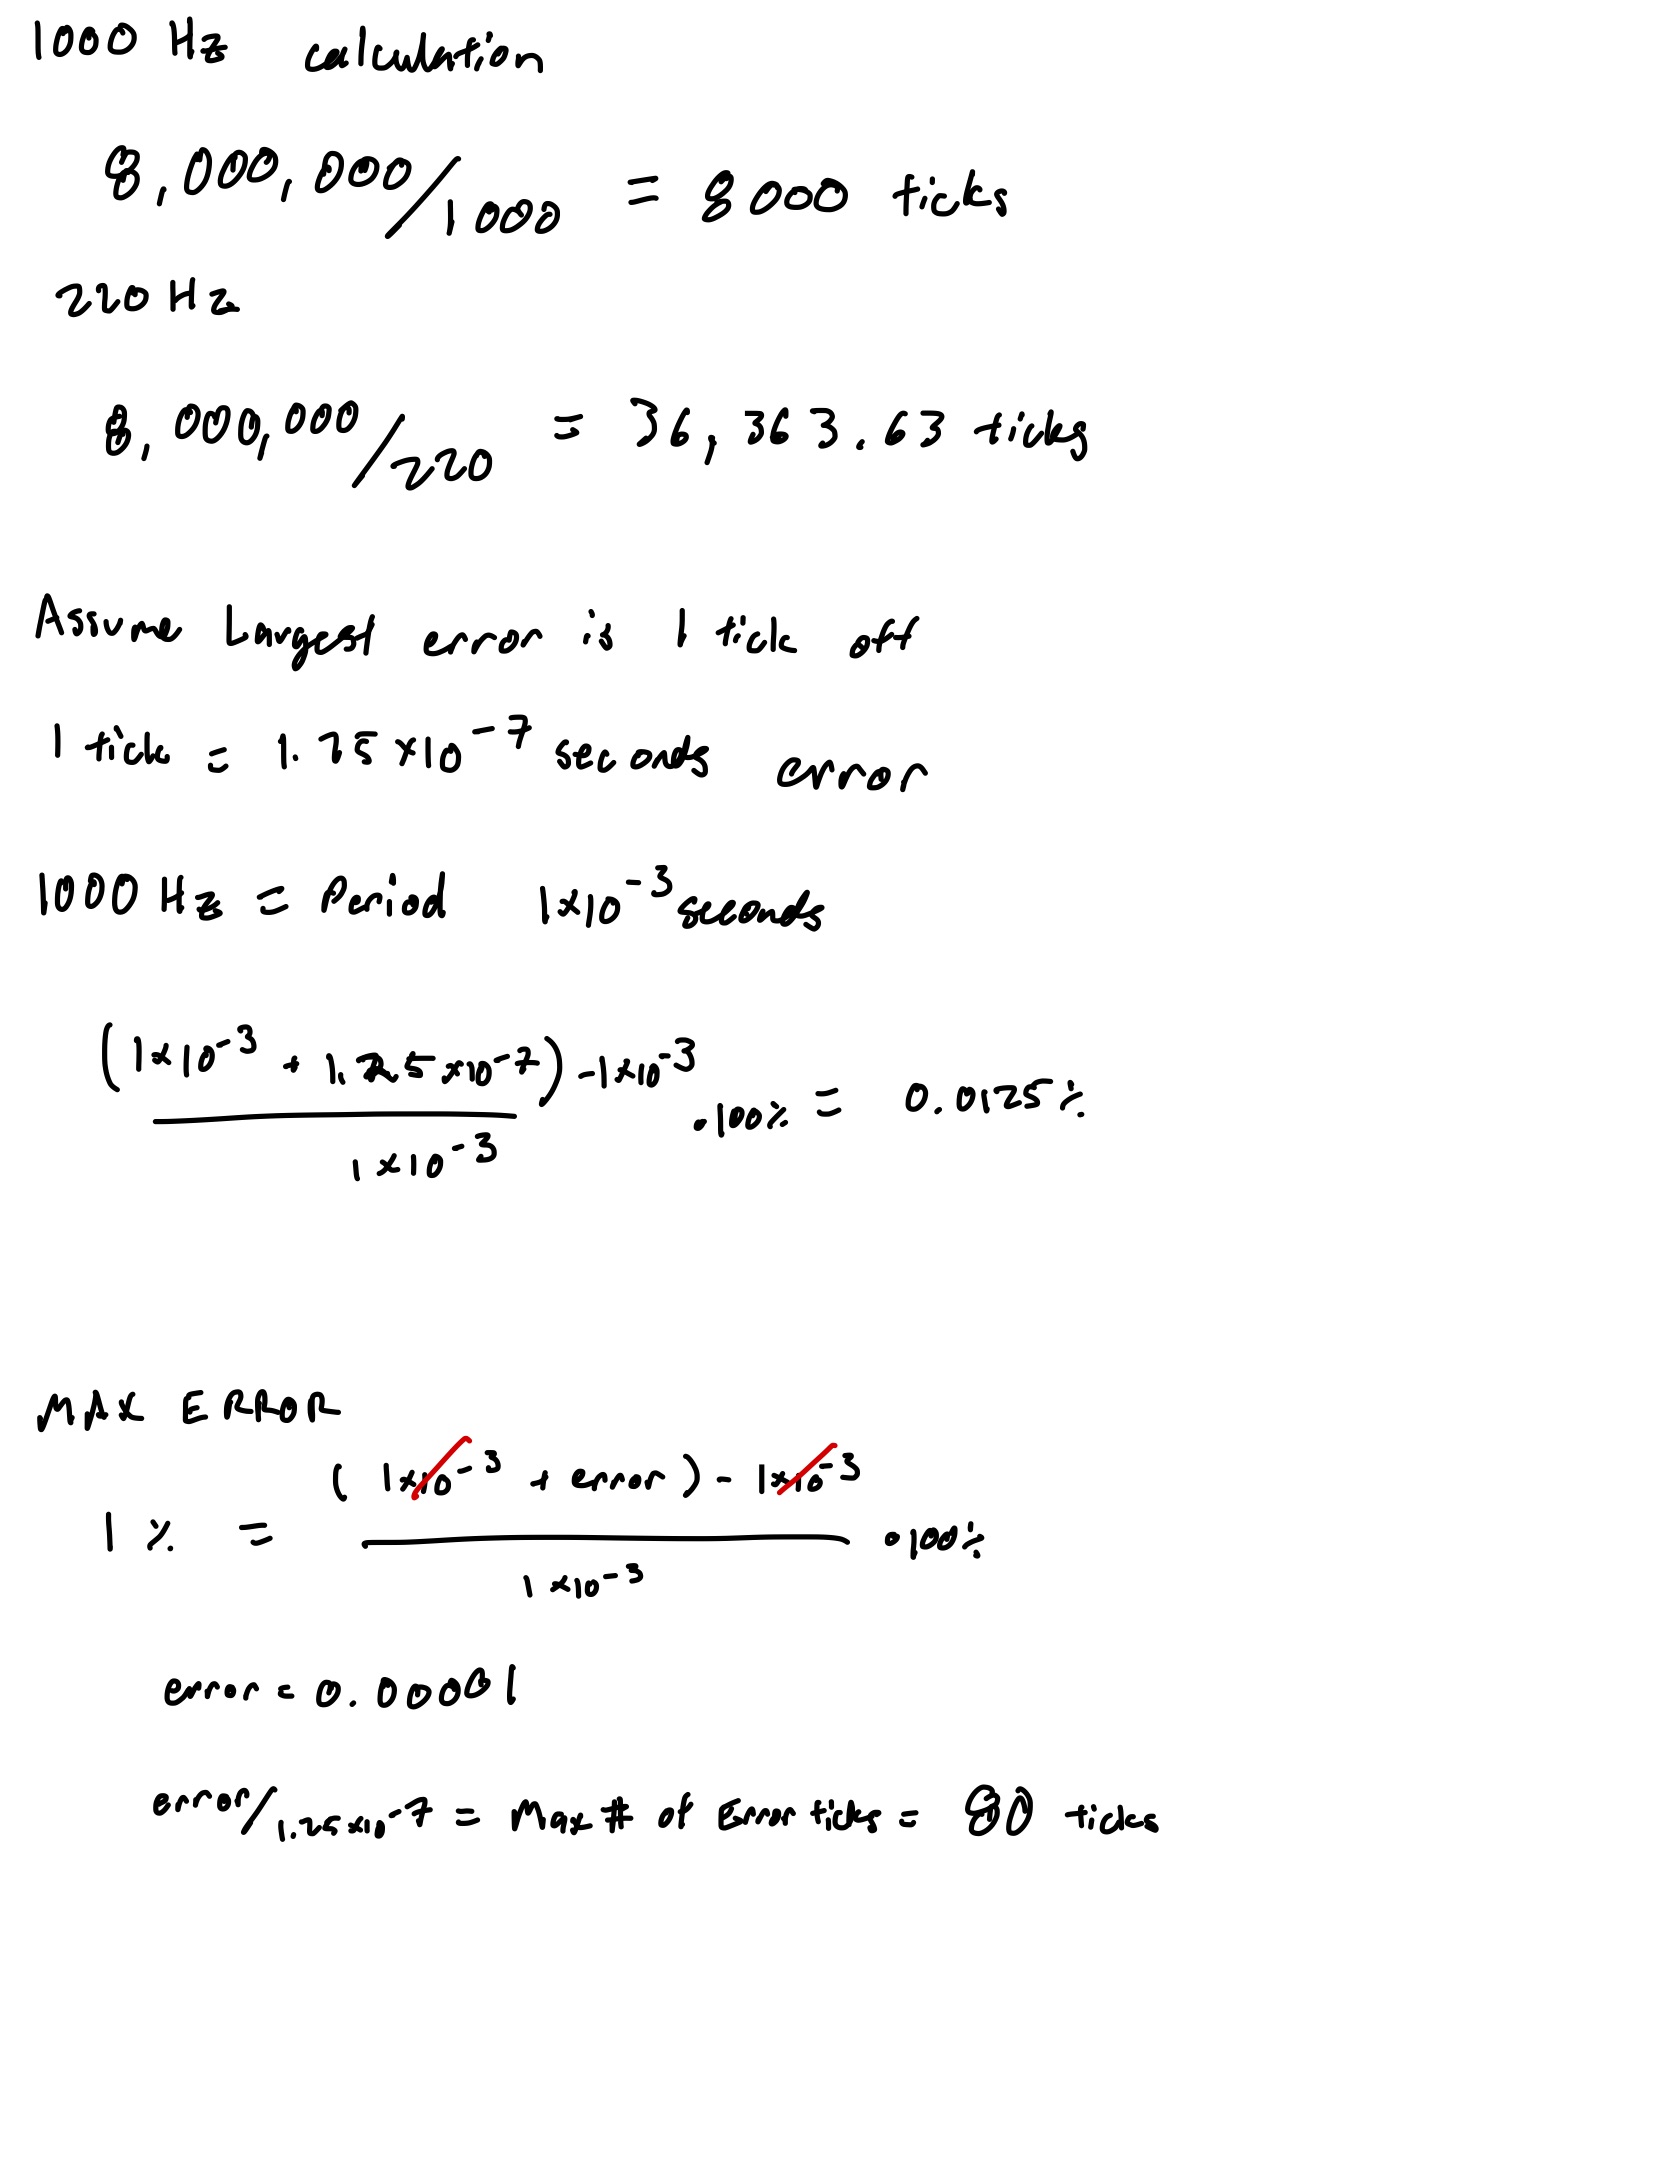 1000 Hz calculation
8,000,000/1000 = 8000 ticks
220 Hz
8,000,000/220 = 36,363.63 ticks
Assume Largest error is 1 tick off
1 tick = 1.25×10⁻⁷ seconds error
1000 Hz = Period 1×10⁻³ seconds
(1×10⁻³ + 1.25×10⁻⁷) - 1×10⁻³
1×10⁻³
·100% = 0.0125%
MAX ERROR
(1×10⁻³ + error) - 1×10⁻³
1% =
·100%
1×10⁻³
error = 0.00001
error/1.25×10⁻⁷ = Max # of Error ticks = 80 ticks